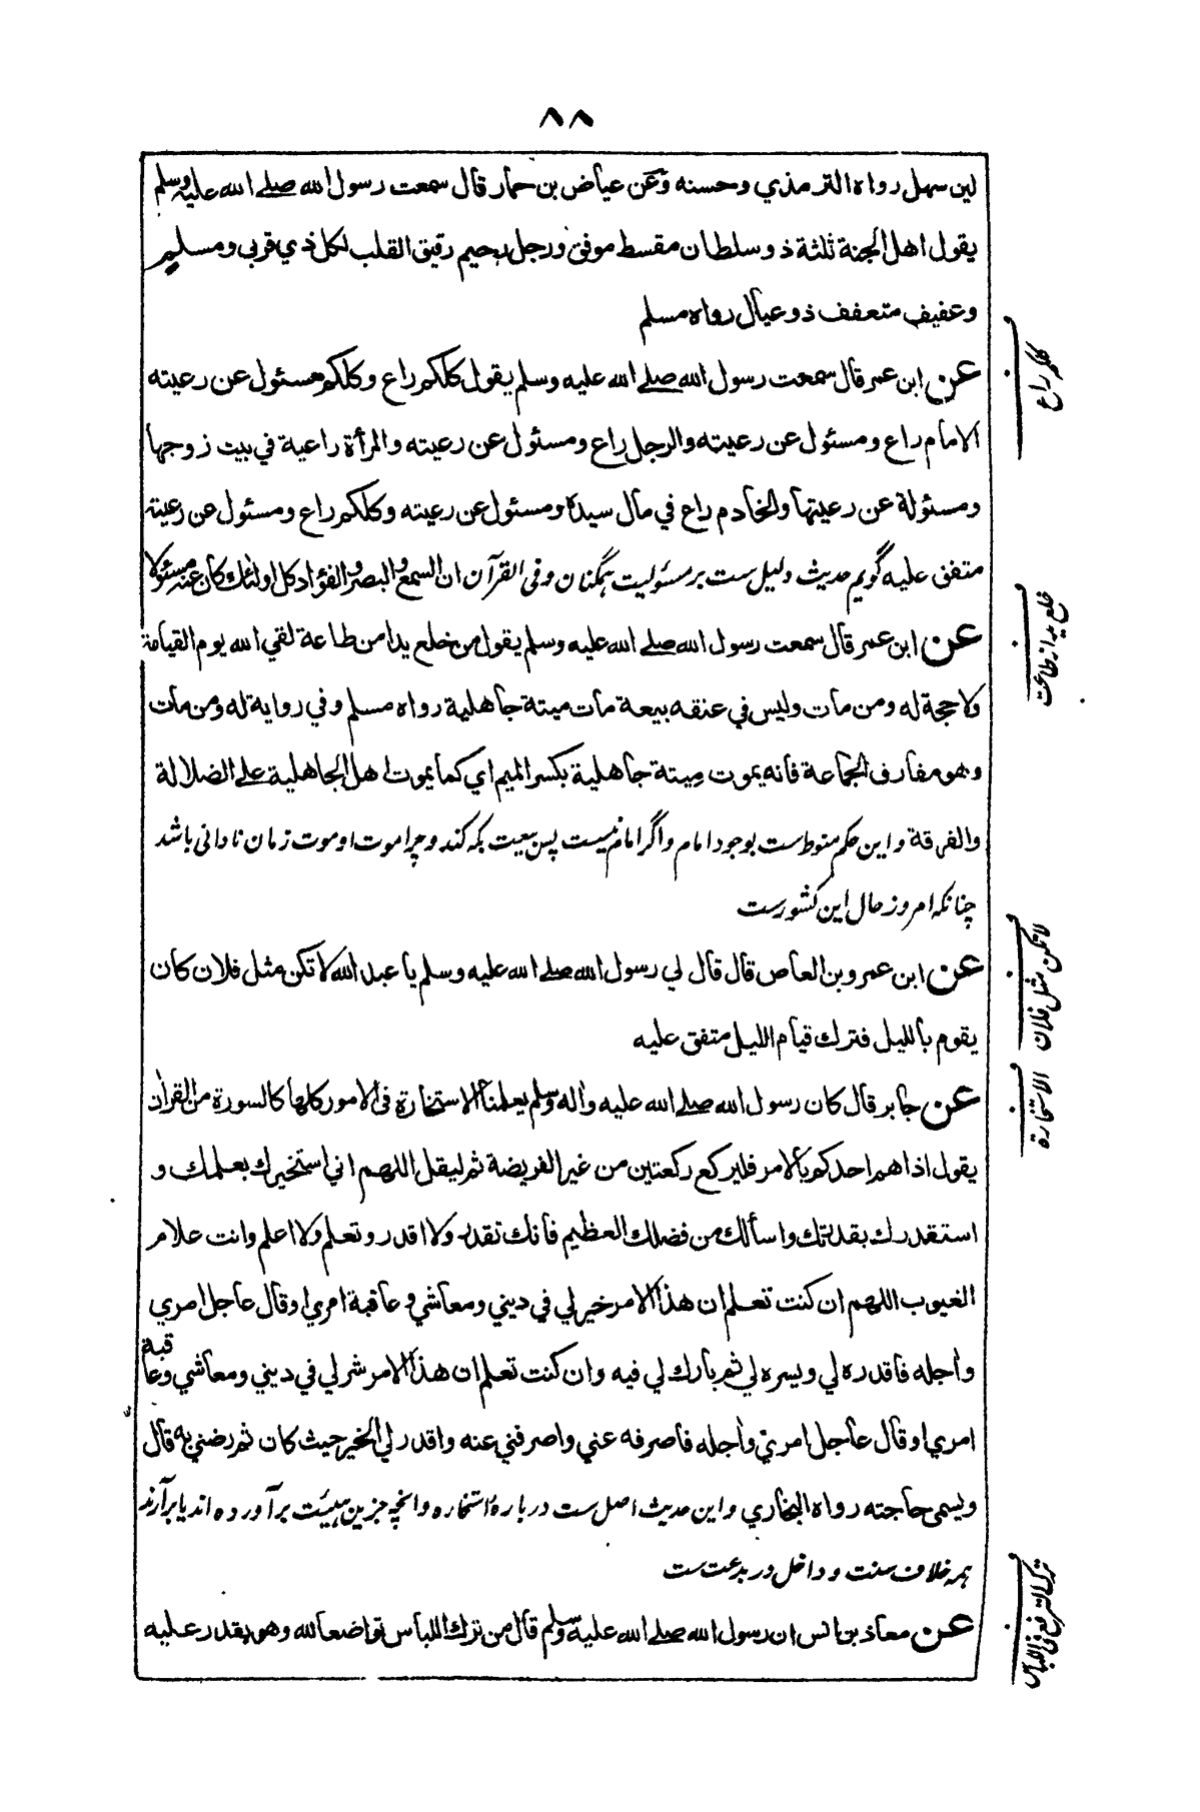 ٨٨
لين سهل رواه الترمذي وحسنه وعن عياض بن حمار قال سمعت رسول الله صلے الله عليه وسلم
يقول اهل الجنة ثلثة ذو سلطان مقسط موفق ورجل رحيم رقيق القلب لكل ذي قربى ومسلم
وعفيف متعفف ذو عيال رواه مسلم
عن ابن عمر قال سمعت رسول الله صلے الله عليه وسلم يقول كلكم راع وكلكم مسئول عن رعيته
الامام راع ومسئول عن رعيته والرجل راع ومسئول عن رعيته والمرأة راعية في بيت زوجها
ومسئولة عن رعيتها والخادم راع في مال سيده ومسئول عن رعيته وكلكم راع ومسئول عن رعيته
متفق عليه گويم حديث دليل ست بر مسئوليت همگنان وفى القرآن ان السمع والبصر والفؤاد كل اولئك كان عنه مسئولا
عن ابن عمر قال سمعت رسول الله صلے الله عليه وسلم يقول من خلع يدا من طاعة لقي الله يوم القيامة
ولا حجة له ومن مات وليس في عنقه بيعة مات ميتة جاهلية رواه مسلم وفي رواية له ومن مات
وهو مفارق الجماعة فانه يموت ميتة جاهلية بكسر الميم اي كما يموت اهل الجاهلية على الضلالة
والفرقة واين حكم منوط ست بوجود امام واگر امام نيست پس بيعت بكه كند وچرا موت او موت زمان نادانى باشد
چنانكه امروز حال اين كشورست
عن ابن عمرو بن العاص قال قال لي رسول الله صلے الله عليه وسلم يا عبد الله لا تكن مثل فلان كان
يقوم بالليل فترك قيام الليل متفق عليه
عن جابر قال كان رسول الله صلے الله عليه وآله وسلم يعلمنا الاستخارة فى الامور كلها كالسورة من القرآن
يقول اذا هم احدكم بالامر فليركع ركعتين من غير الفريضة ثم ليقل اللهم اني استخيرك بعلمك و
استقدرك بقدرتك واسألك من فضلك العظيم فانك تقدر ولا اقدر وتعلم ولا اعلم وانت علام
الغيوب اللهم ان كنت تعلم ان هذا الامر خير لي في ديني ومعاشي وعاقبة امري او قال عاجل امري
وآجله فاقدره لي ويسره لي ثم بارك لي فيه وان كنت تعلم ان هذا الامر شر لي في ديني ومعاشي وعاقبة
امري او قال عاجل امري وآجله فاصرفه عني واصرفني عنه واقدر لي الخير حيث كان ثم رضني به قال
ويسمى حاجته رواه البخاري واين حديث اصل ست دربارهٔ استخاره وانچه جزين هيئت برآورده اند يا برآرند
همه خلاف سنت وداخل در بدعت ست
عن معاذ بن انس ان رسول الله صلے الله عليه وسلم قال من ترك اللباس تواضعا لله وهو يقدر عليه
كلكم راع
خلع يد از طاعت
لا تكن مثل فلان
الاستخارة
ترك الترفع فى اللباس